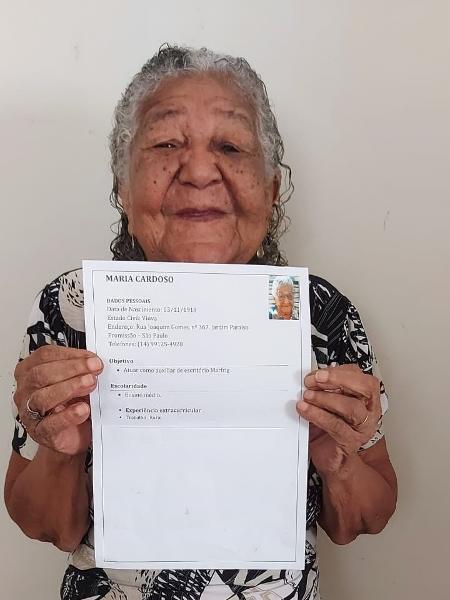 MARIA CARDOSO
DADOS PESSOAIS
Data de Nascimento:
Estado Civil: Viúva
Endereço: Rua Joaquim Gomes, nº 367, Jardim Paraíso
Promissão – São Paulo
Telefones: (14) 99125-4928
Objetivo
• Atuar como auxiliar de escritório Marfrig
Escolaridade
• Ensino médio.
• Experiência extracurricular